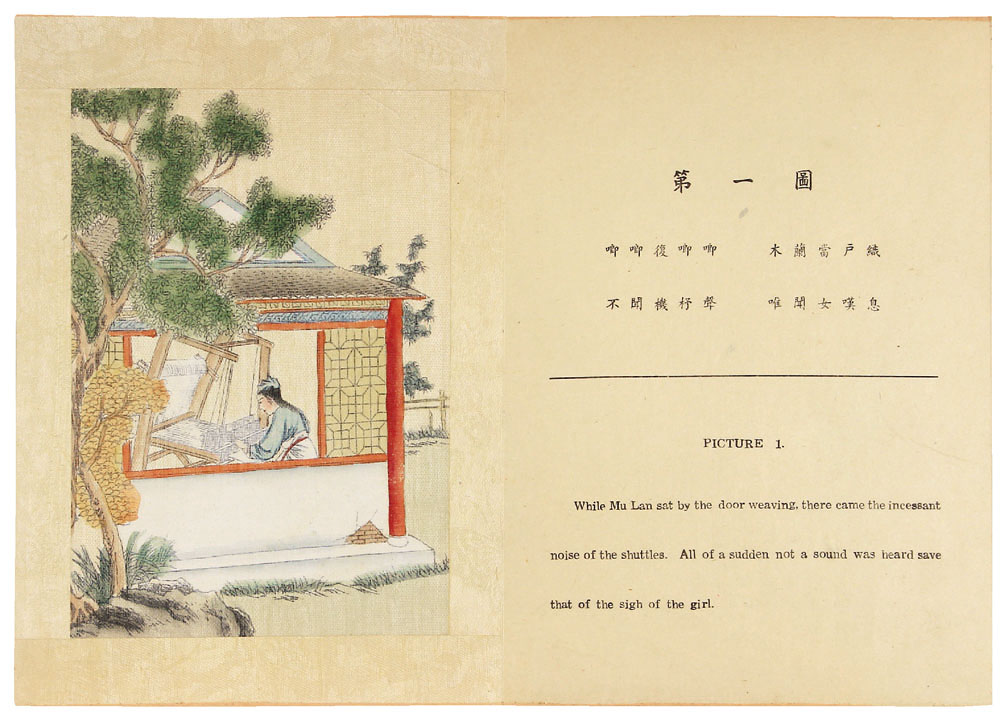 第一圖
唧唧復唧唧 木蘭當戶織
不聞機杼聲 唯聞女嘆息
PICTURE 1.
While Mu Lan sat by the door weaving, there came the incessant
noise of the shuttles. All of a sudden not a sound was heard save
that of the sigh of the girl.